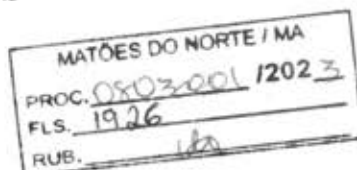 MATÕES DO NORTE / MA
PROC. 0803001 /2023
FLS. 1926
RUB.